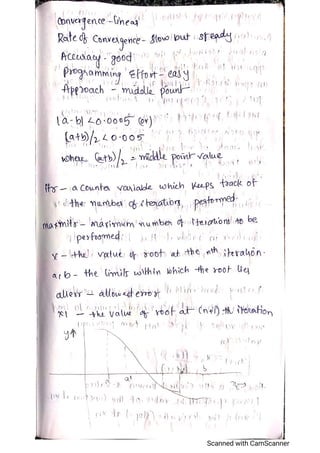 Convergence - linear
Rate of Convergence - slow but steady
Accuracy - good
Programming Effort - easy
Approach - middle point
|a-b| < 0.0005 (or)
(a+b)/2 < 0.005
where (a+b)/2 = middle point value
itr - a counter variable which keeps track of
the number of iterations performed
maxmitr - maximum number of iterations to be
performed
x - the value of root at the nth iteration
a, b - the limits within which the root lies
allerr - allowed error
x1 - the value of root at (n+1) th iteration
y
a
b
Scanned with CamScanner